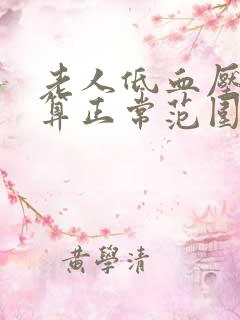 老人低血壓
算正常范围
黄學清